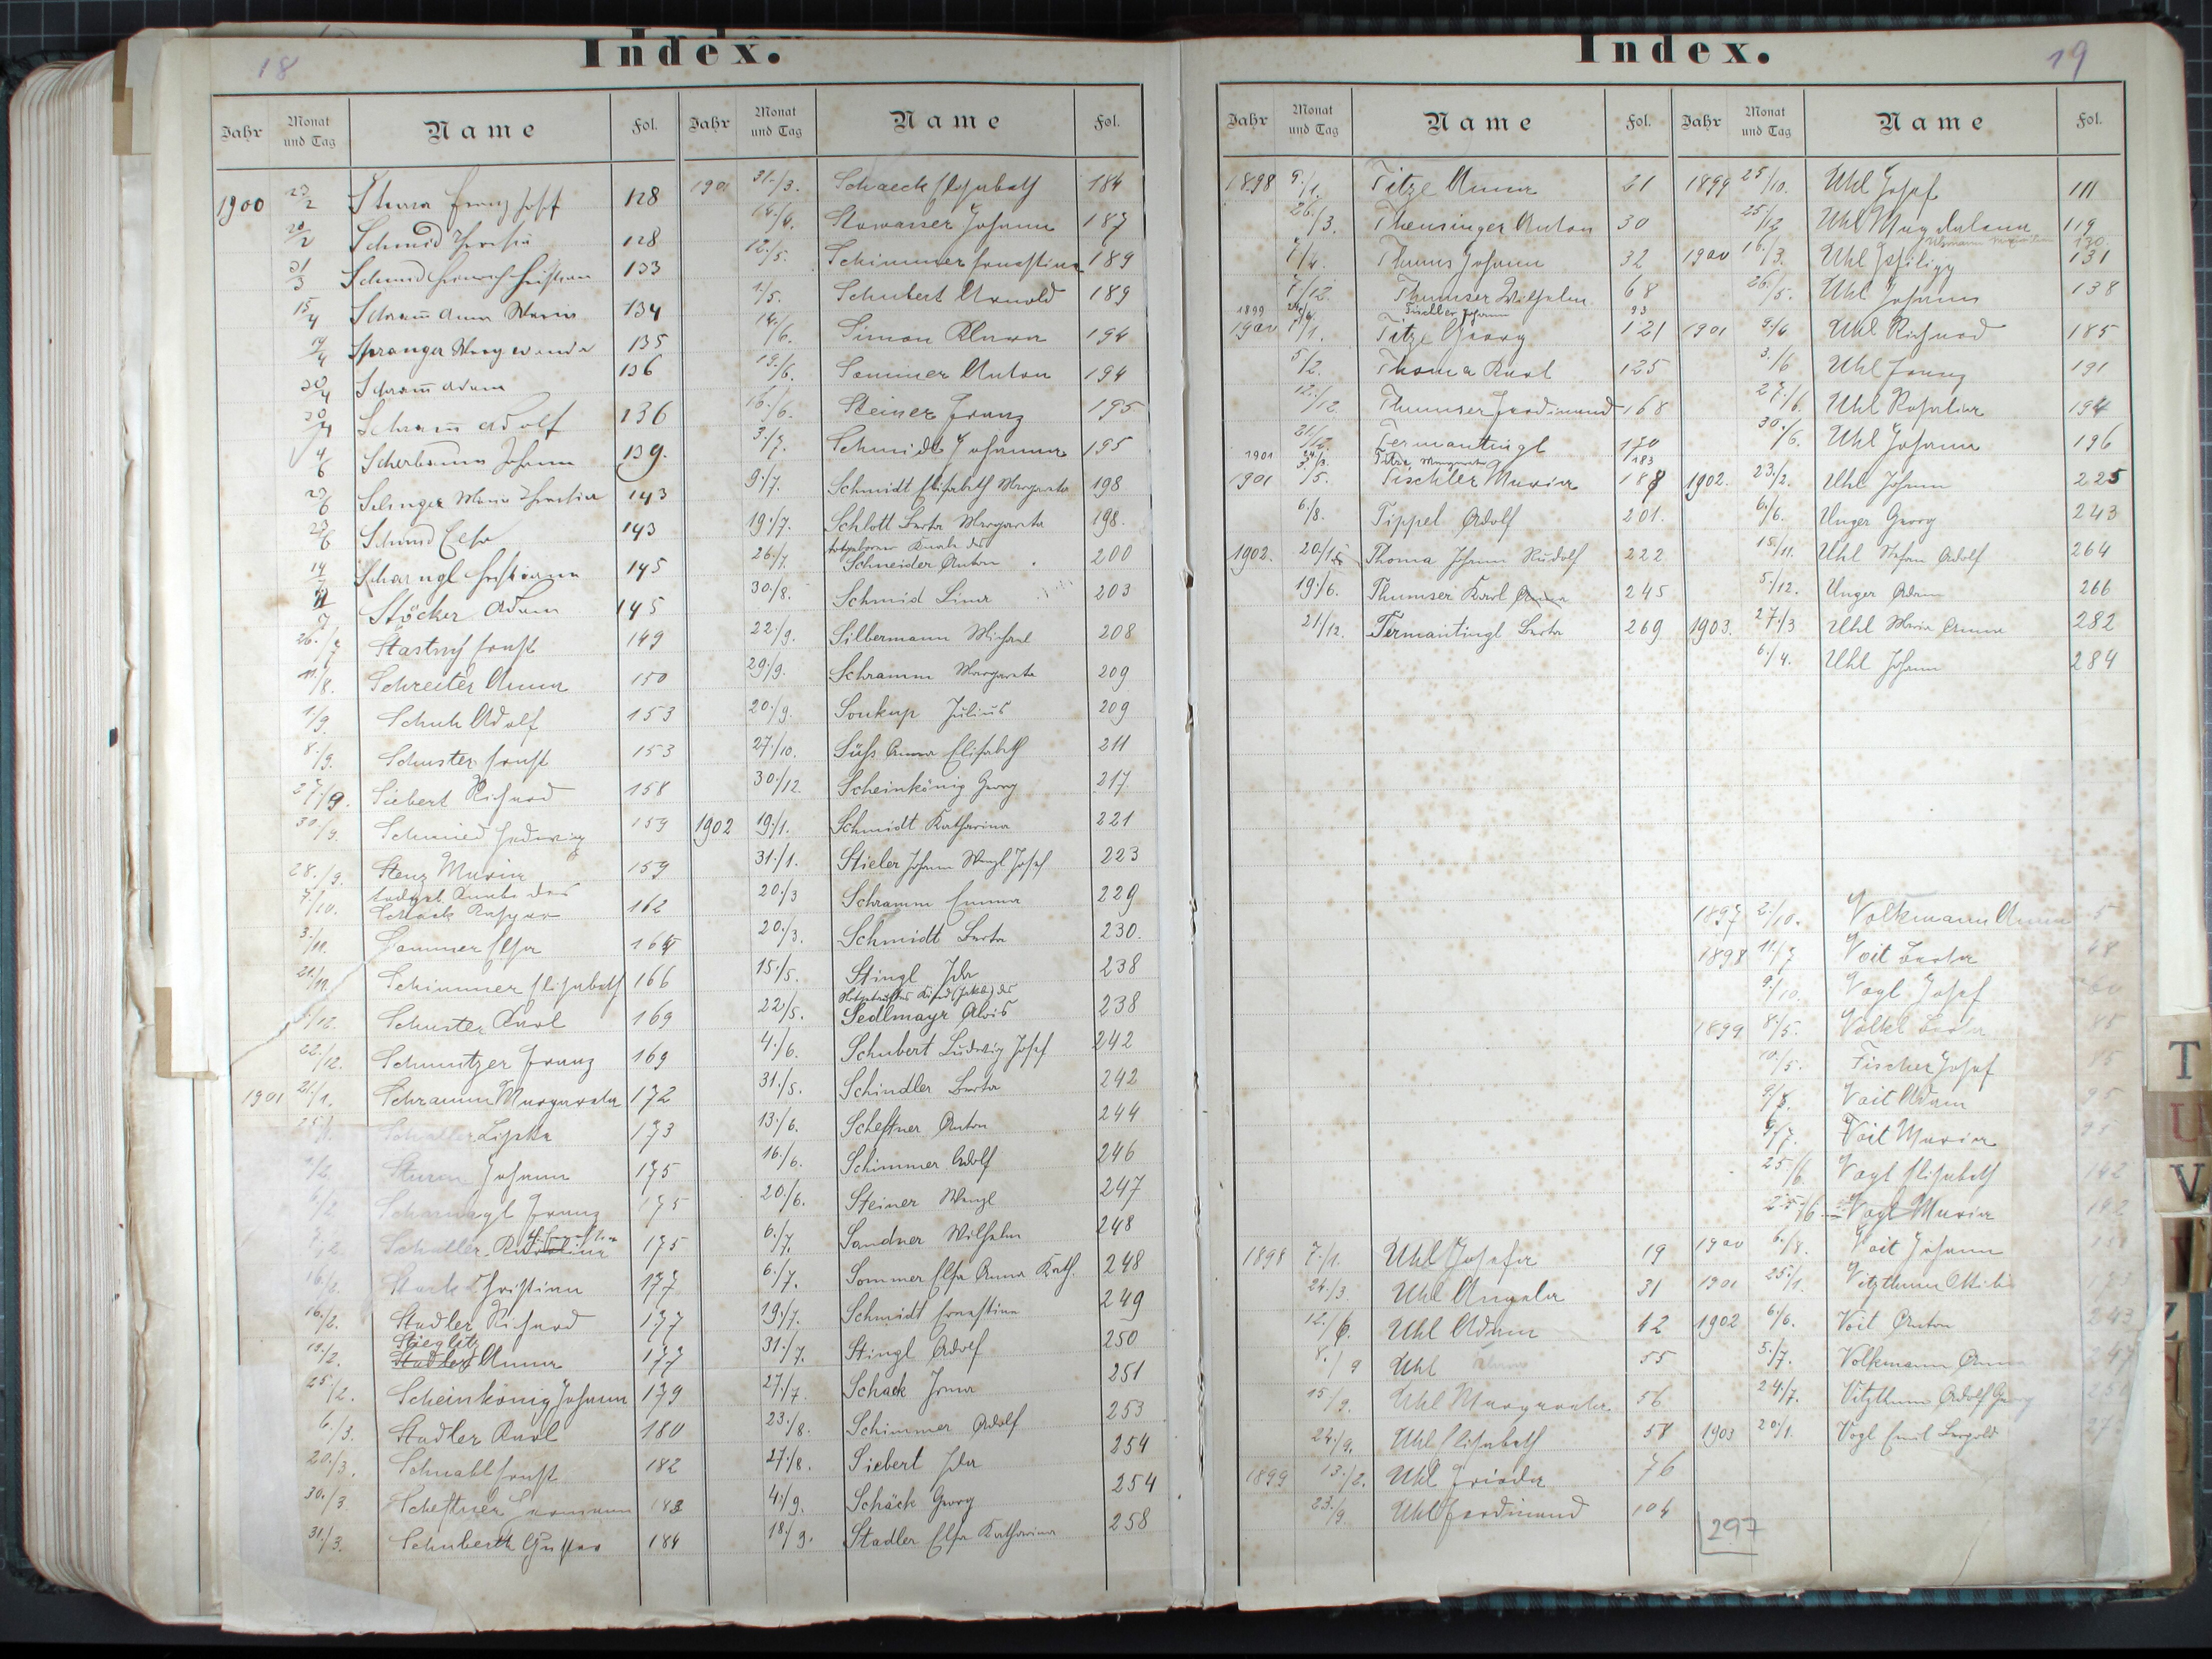 18
Index.
Jahr Monat und Tag Name Fol.
1900 23/2 Sturm Franz Josef 128
20/2 Schmid Theresia 128
21/3 Schmid Heinrich Christian 133
15/4 Schram̄ Anna Maria 134
19/4 Spranger 135
20/4 Schram̄ Adam 136
20/4 Schram̄ Adolf 136
4/6 Scherbaum Johann 139.
23/6 Selinger Maria Christina 143
23/6 Schmid Elsa 143
14/7 Scharnagl Christiana 145
7 Stöcker Adam 145
26./7 Stastny Ernst 149
11./8. Schreiter Anna 150
1/9. Schuh Adolf 153
8./9. Schuster Ernst 153
27./9. Siebert Richard 158
30./9. Schmied Hedwig 159
28./9. Stenz Maria 159
7./10. todgeb. Knabe des
Schack Kaspar 162
3./11. Sommer Elsa 164
21./11. Schimmer Elisabeth 166
/12. Schuster Karl 169
22./12. Schmitzer Franz 169
1901 21./1. Schramm Margareta 172
25./1. Schaller Lipka 173
/2. Sturm Johann 175
6/2 Scharnagl Franz 175
7/2 Schaller 175
16/2. Stark Christian 177
16/2. Stadler Richard 177
19/2. Stieglitz
Stadler Anna 177
25./2. Scheinkönig Johann 179
6./3. Stadler Karl 180
20./3. Schnabl Ernst 182
30./3. Scheftner Hermann 183
31/3. Schuberth Gustav 184
Jahr Monat und Tag Name Fol.
1901 31./3. Schaeck Elisabeth 184
14./4. Stowasser Johann 187
12./5. Schimmer Ernestine 189
1./5. Schubert Arnold 189
14./6. Simon Klara 194
19./6. Sommer Anton 194
16./6. Steiner Franz 195
3./7. Schmidt Johanna 195
9./7. Schmidt Elisabeth Margareta 198
19./7. Schlott Berta Margareta 198.
26./7. totgeborner Knabe des
Schneider Anton 200
30./8. Schmid Lina 203
22./9. Silbermann Michael 208
29./9. Schramm Margareta 209
20./9. Soukup Julius 209
27./10. Süß Anna Elisabeth 211
30./12. Scheinkönig Georg 217
1902 19./1. Schmidt Katharina 221
31./1. Stieler Johann Wenzl Josef 223
20./3 Schramm Emma 229
20./3. Schmidt Berta 230.
15./5. Stingl Ida 238
22./5. Notgetauftes Kind (Jakob) des
Sedlmayr Alois 238
4./6. Schubert Ludwig Josef 242
31./5. Schindler Berta 242
13./6. Scheftner Anton 244
16./6. Schimmer Adolf 246
20./6. Steiner Wenzl 247
6./7. Sandner Wilhelm 248
6./7. Sommer Elsa Anna Kath. 248
19./7. Schmidt Ernestine 249
31./7. Stingl Adolf 250
27./7. Schack Irma 251
23./8. Schimmer Adolf 253
27./8. Siebert Ida 254
4./9. Schäck Georg 254
18./9. Stadler Elsa Katharina 258
Index.
19
Jahr Monat und Tag Name Fol.
1898 9./1. Titze Anna 21
26./3. Thensinger Anton 30
7/4. Thums Johann 32
7/12. Thumser Wilhelm 68
1899 24/6 Tischler Johann 93
1900 1/1. Titze Georg 121
5/2. Thoma Karl 125
12./12. Thumser Ferdinand 168
21./12. Termantingl 170
1901 24/3. Titze Margareta 183
1901 3./5. Tischler Maria 188
6./8. Tippel Adolf 201.
1902. 20./1. Thoma Johann Rudolf 222
19./6. Thumser Karl Anna 245
21./12. Termantingl Berta 269
1898 7./1. Uhl Josefa 19
24./3. Uhl Angela 31
12./6. Uhl Adam 42
8./9 Uhl 55
15./9. Uhl Margareta. 56
24./9. Uhl Elisabeth 57
1899 13./2. Uhl Frieda 76
23./9. Uhl Ferdinand 104
Jahr Monat und Tag Name Fol.
1899 25/10. Uhl Josef 111
25/12 Uhl Magdalena 119
Ulsmann 130
1900 16./3. Uhl 131
26./5. Uhl Johann 138
1901 9./4 Uhl Richard 185
3./6 Uhl Franz 191
27./6. Uhl Rosalia 194
30./6. Uhl Johann 196
1902. 23./2. Uhl Johann 225
6./6. Unger Georg 243
15./11. Uhl Stefan Adolf 264
5./12. Unger Adam 266
1903. 27./3 Uhl Maria Anna 282
6./4. Uhl Johann 284
1897 2./10. Volkmann Anna 5
1898 11./7 Voit Berta 48
9./10. Vogl Josef 60
1899 8./5. Völkl Berta 85
10./5. Fischer Josef 85
2/8. Voit Adam 95
9/7. Voit Maria 95
25/6. Vogl Elisabeth 142
25/6 Vogl Maria 142
1900 6./8. Voit Johann
1901 25./1. Vitzthum 173
1902 6./6. Voit Anton 243
5./7. Volkmann Anna 247
24./7. Vitzthum Adolf Georg 250
1903 20./1. Vogl Emil Leopold 27
297
T
U
V
Z